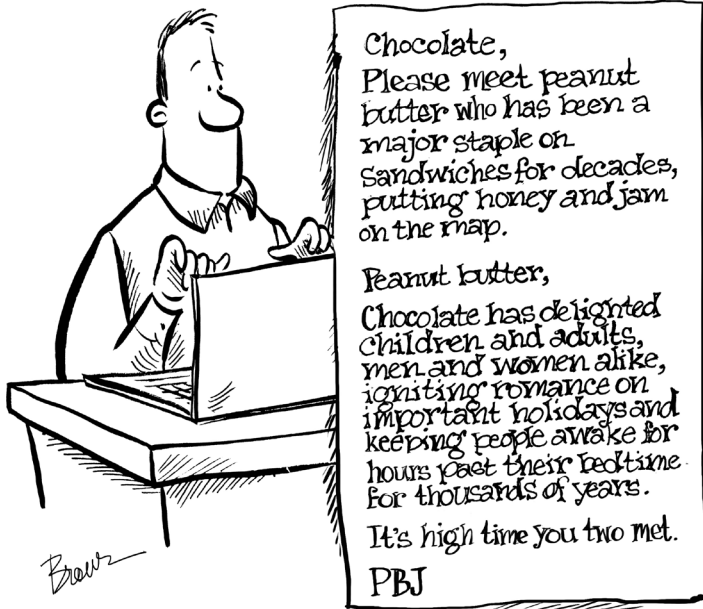 Chocolate,
Please meet peanut
butter who has been a
major staple on
sandwiches for decades,
putting honey and jam
on the map.
Peanut butter,
Chocolate has delighted
children and adults,
men and women alike,
igniting romance on
important holidays and
keeping people awake for
hours past their bedtime
for thousands of years.
It's high time you two met.
PBJ
Brown